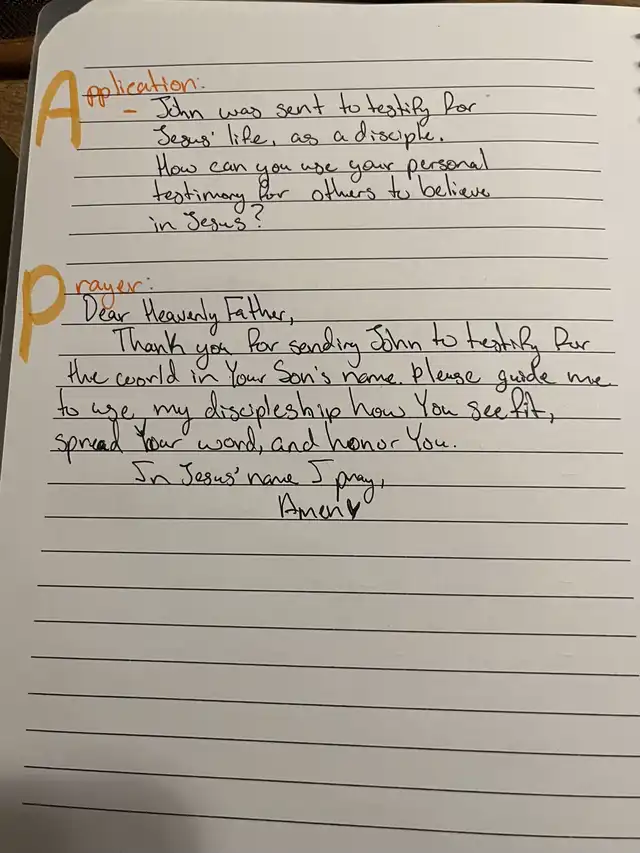 Application:
- John was sent to testify for
Jesus' life, as a disciple.
How can you use your personal
testimony for others to believe
in Jesus?
Prayer:
Dear Heavenly Father,
Thank you for sending John to testify for
the world in Your Son's name. Please guide me
to use my discipleship how You see fit,
spread Your word, and honor You.
In Jesus' name I pray,
Amen♥